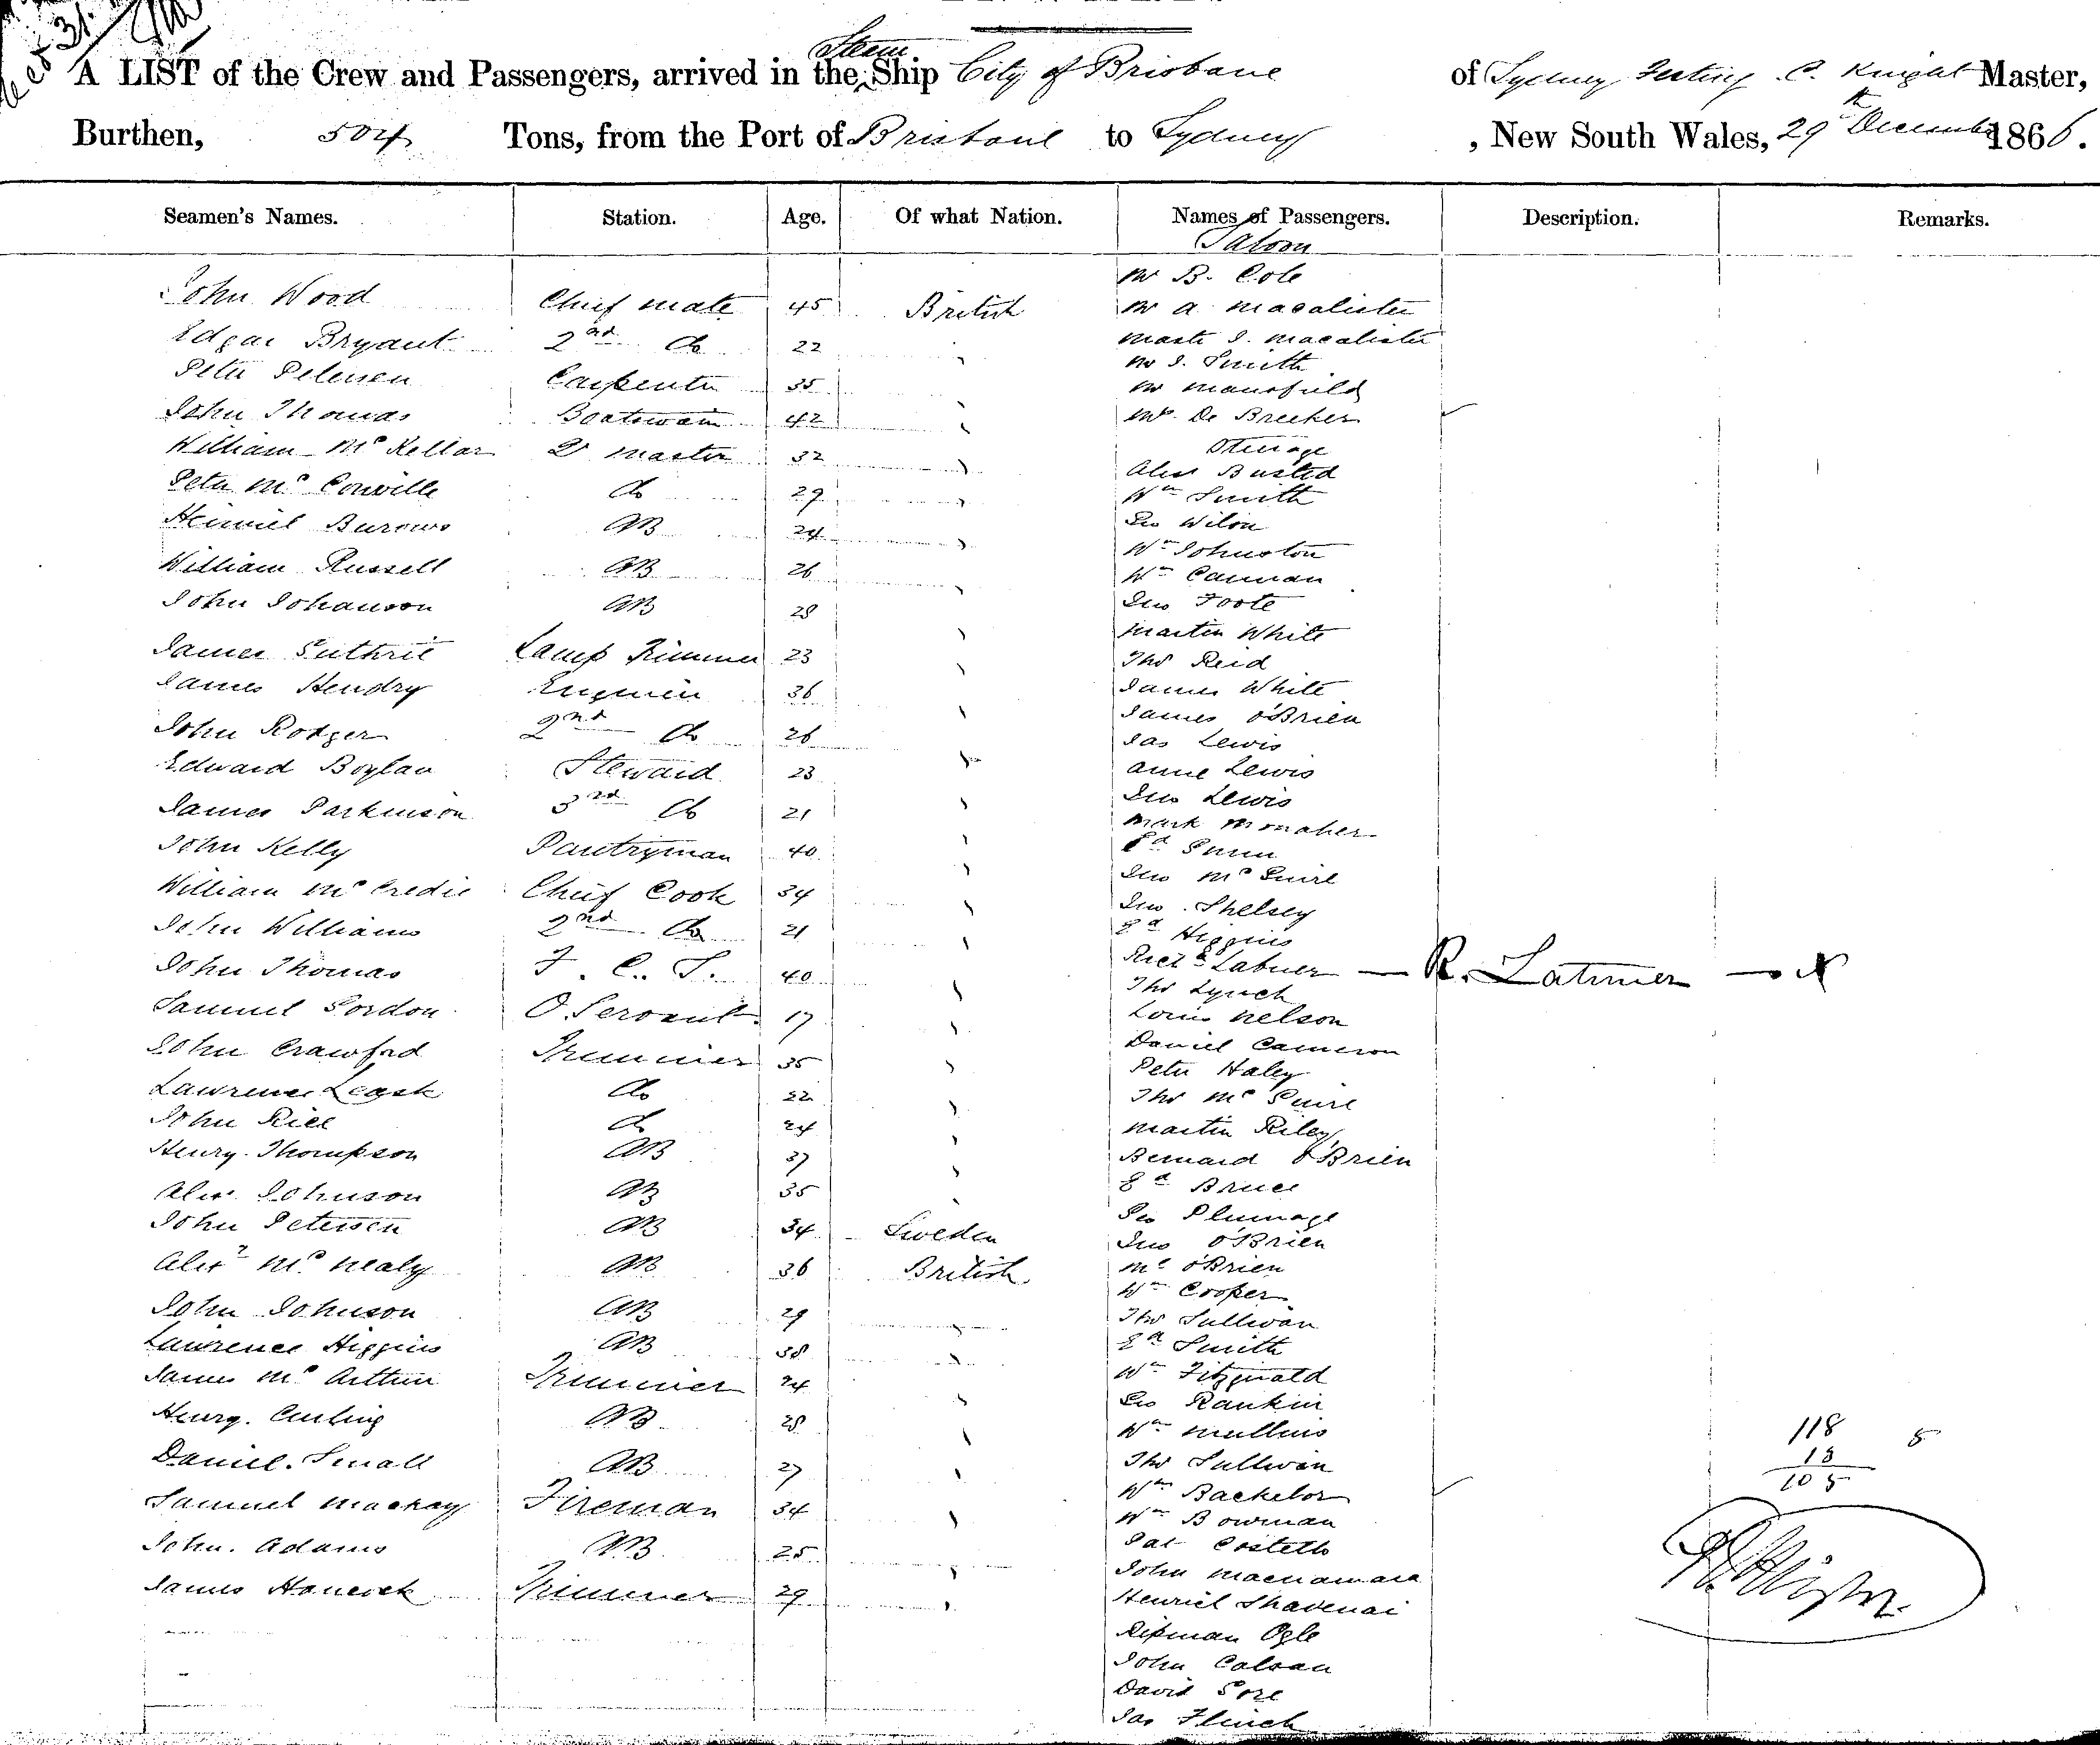 A LIST of the Crew and Passengers, arrived in the Steam Ship City of Brisbane of Sydney C. Knight Master,
Burthen, 504 Tons, from the Port of Brisbane to Sydney, New South Wales, 29th December 1866.
Seamen's Names. Station. Age. Of what Nation. Names of Passengers. Description. Remarks.
Saloon
John Wood Chief mate 45 British
Edgar Bryant 2nd do 22
Peter Petersen Carpenter 35
John Thomas Boatswain 42
William McKellar Q master 32
Peter McConville do 29
Burows AB 24
William Russell AB 26
John Johanson AB 28
James Guthrie Lamp Trimmer 23
James Hendry Engineer 36
John Rodger 2nd do 26
Edward Boylan Steward 23
James Parkinson 3rd do 21
John Kelly Pantryman 40
William McCredie Chief Cook 34
John Williams 2nd do 21
John Thomas F. C. S. 40
Samuel Gordon O. Servant 17
John Crawford Trimmer 35
Lawrence Leask do 22
John Rice do 24
Henry Thompson AB 37
Alex Johnson AB 35
John Petersen AB 34 Sweden
Alexr McNealy AB 36 British
John Johnson AB 29
Lawrence Higgins AB 38
James McArthur Trimmer 24
Henry Curling AB 28
Daniel Small AB 27
Samuel Mackay Fireman 34
John Adams AB 25
James Hancock Trimmer 29
Mr B. Cole
Mr A Macalister
Master J. Macalister
Mr J. Smith
Mr Mansfield
Mr De Breeker
Steerage
Alex Busted
Wm Smith
Geo Wilson
Wm Johnston
Wm Cannan
Jno Foote
Martin White
Thos Reid
James White
James O'Brien
Jas Lewis
Anne Lewis
Jno Lewis
Mark Monaher
Ed Gunn
Jno McGuire
Jno Shelsey
Ed Higgins
Richd Latimer — R. Latimer — X
Thos Lynch
Louis Nelson
Daniel Cameron
Peter Haley
Thos McGuire
Martin Riley
Bernard O'Brien
Ed Bruce
Geo Plumage
Jno O'Brien
Mc O'Brien
Wm Cooper
Thos Sullivan
Ed Smith
Wm Fitzgerald
Geo Rankin
Wm Mullins
Thos Sullivan
Wm Bachelor
Wm Bowman
Pat Costello
John Macnamara
Henrich
Ripman Ogle
John Calvan
David Gore
Jas Flinch
118 5
13
105